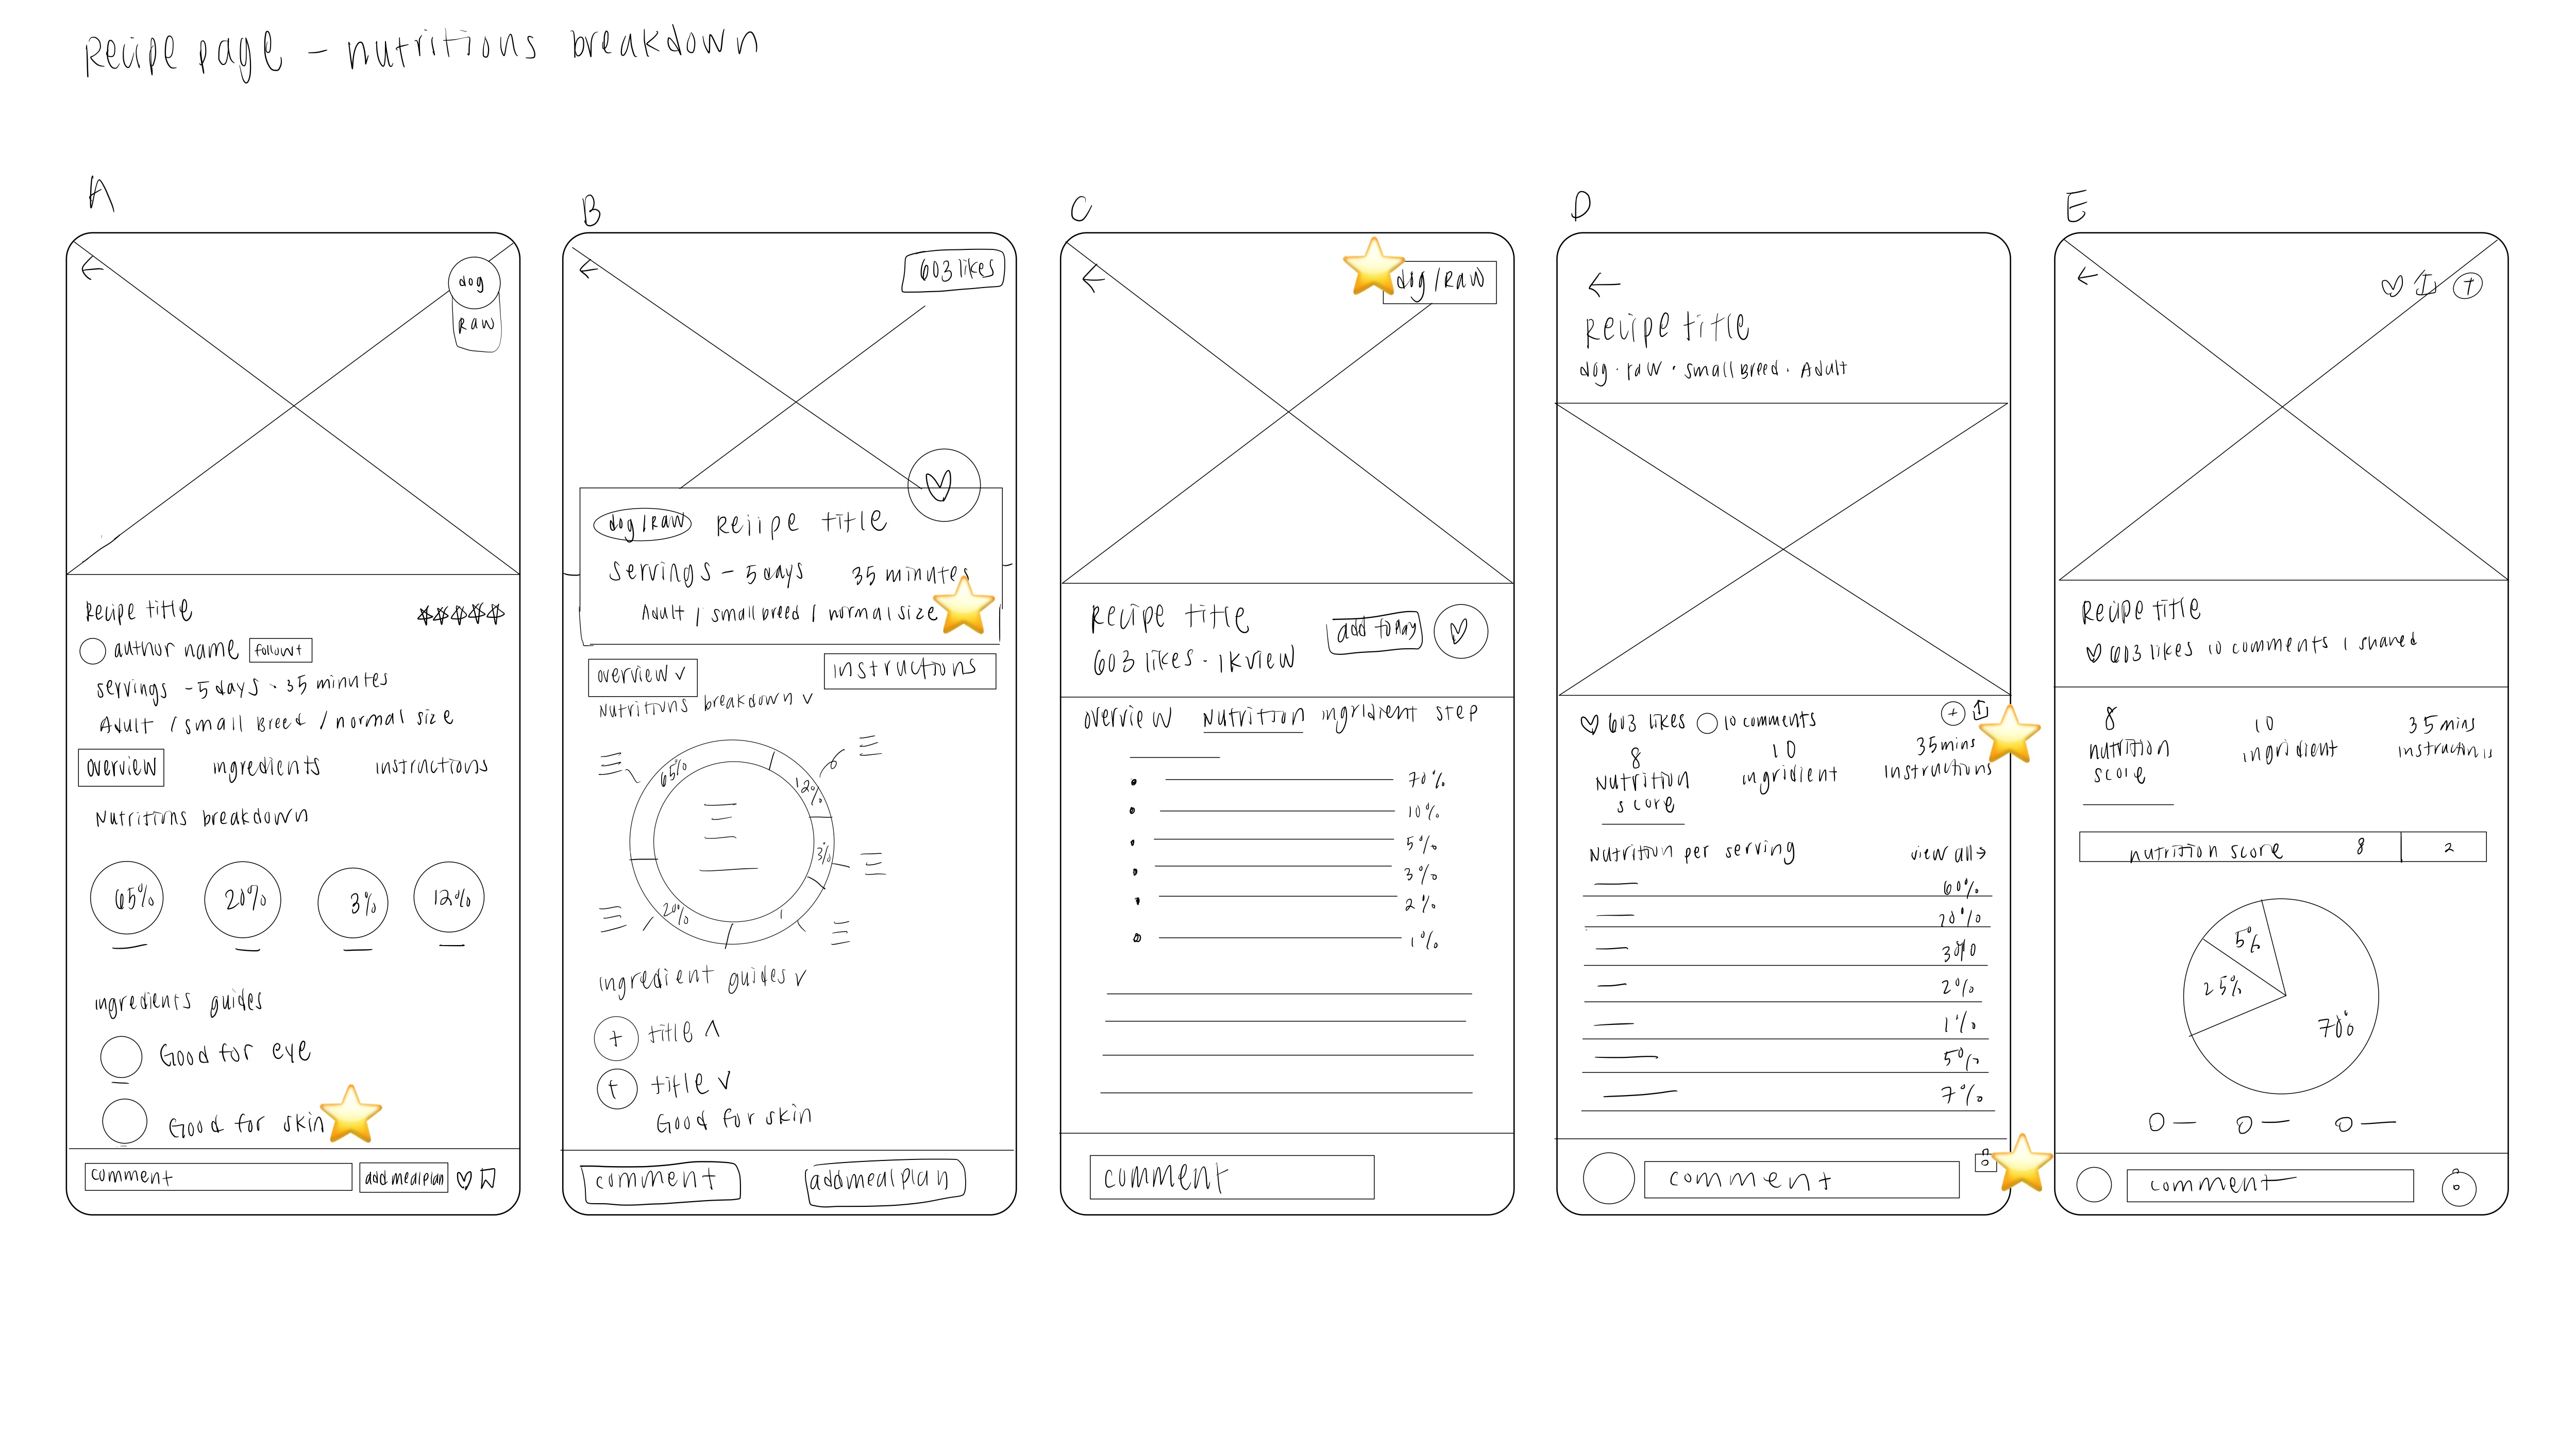 Recipe page - nutritions breakdown
A
dog
RAW
Recipe title
author name follow+
servings - 5 days - 35 minutes
Adult / small Breed / normal size
overview ingredients instructions
Nutritions breakdown
65% 20% 3% 12%
ingredients guides
Good for eye
Good for skin
comment add meal plan
B
603 likes
dog/RAW Recipe title
servings - 5 days 35 minutes
Adult / small breed / normal size
overview instructions
Nutritions breakdown
65%
12%
3%
20%
ingredient guides
+ title
+ title
Good for skin
comment add meal plan
C
dog/RAW
Recipe title
603 likes - 1K view
add to May
overview Nutrition ingridient step
70%
10%
5%
3%
2%
1%
comment
D
Recipe title
dog · raw · small Breed · Adult
603 likes 10 comments +
8 10 35 mins
Nutrition ingridient instructions
score
Nutrition per serving view all →
60%
20%
30%
2%
1%
5%
7%
comment
E
+
Recipe title
603 likes 10 comments 1 shared
8 10 35 mins
nutrition ingridient instructions
score
nutrition score 8 2
5%
25%
70%
comment